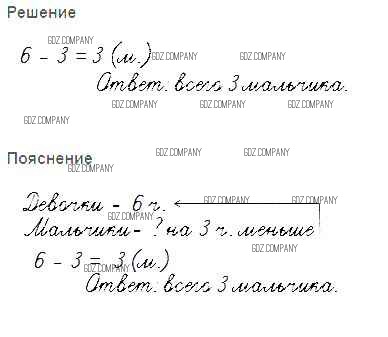 Решение
GDZ.COMPANY
6 - 3 = 3 (м.) GDZ.COMPANY GDZ.COMPANY
Ответ: всего 3 мальчика.
GDZ.COMPANY GDZ.COMPANY GDZ.COMPANY
GDZ.COMPANY
GDZ.COMPANY GDZ.COMPANY
Пояснение
GDZ.COMPANY
Девочки - 6 ч. GDZ.COMPANY GDZ.COMPANY
GDZ.COMPANY
Мальчики - ? на 3 ч. меньше
GDZ.COMPANY
6 - 3 = 3 (м.)
GDZ.COMPANY
Ответ: всего 3 мальчика.